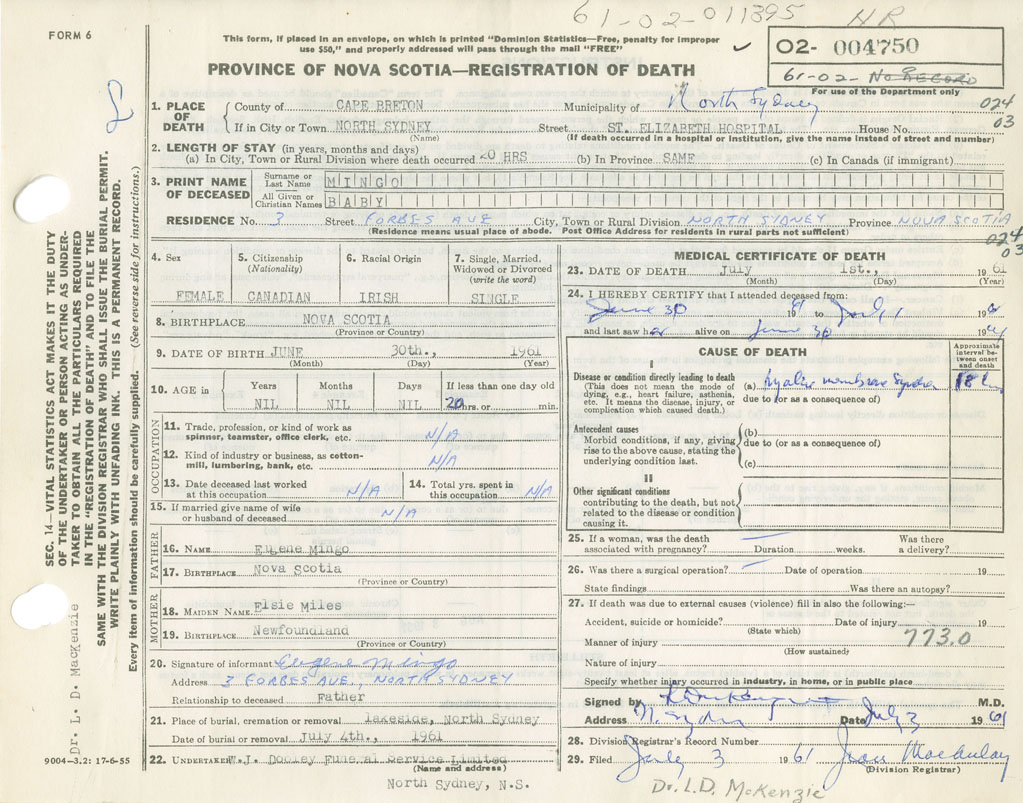 61-02-011395 NR
FORM 6
This form, if placed in an envelope, on which is printed "Dominion Statistics—Free, penalty for improper
use $50," and properly addressed will pass through the mail "FREE"
02- 004750
61-02- No RECORD
For use of the Department only
PROVINCE OF NOVA SCOTIA—REGISTRATION OF DEATH
1. PLACE OF DEATH County of CAPE BRETON Municipality of North Sydney 024
If in City or Town NORTH SYDNEY Street ST. ELIZABETH HOSPITAL House No. 03
(Name) (If death occurred in a hospital or institution, give the name instead of street and number)
2. LENGTH OF STAY (in years, months and days)
(a) In City, Town or Rural Division where death occurred 20 HRS (b) In Province SAME (c) In Canada (if immigrant)
3. PRINT NAME OF DECEASED Surname or Last Name MINGO
All Given or Christian Names BABY
RESIDENCE No. 3 Street FORBES AVE City, Town or Rural Division NORTH SYDNEY Province NOVA SCOTIA
(Residence means usual place of abode. Post Office Address for residents in rural parts not sufficient)
024
03
4. Sex 5. Citizenship (Nationality) 6. Racial Origin 7. Single, Married, Widowed or Divorced (write the word)
FEMALE CANADIAN IRISH SINGLE
8. BIRTHPLACE NOVA SCOTIA
(Province or Country)
9. DATE OF BIRTH JUNE 30th., 1961
(Month) (Day) (Year)
10. AGE in Years Months Days If less than one day old
NIL NIL NIL 20 hrs. or min.
OCCUPATION
11. Trade, profession, or kind of work as
spinner, teamster, office clerk, etc. N/A
12. Kind of industry or business, as cotton-
mill, lumbering, bank, etc. N/A
13. Date deceased last worked at this occupation N/A 14. Total yrs. spent in this occupation N/A
15. If married give name of wife
or husband of deceased N/A
FATHER
16. NAME Eugene Mingo
17. BIRTHPLACE Nova Scotia
(Province or Country)
MOTHER
18. MAIDEN NAME Elsie Miles
19. BIRTHPLACE Newfoundland
(Province or Country)
20. Signature of informant Eugene Mingo
Address 3 FORBES AVE., NORTH SYDNEY
Relationship to deceased Father
21. Place of burial, cremation or removal lakeside, North Sydney
Date of burial or removal July 4th., 1961
22. UNDERTAKER W.J. Dooley Funeral Service Limited
(Name and address)
North Sydney, N.S.
MEDICAL CERTIFICATE OF DEATH
23. DATE OF DEATH July 1st., 1961
(Month) (Day) (Year)
24. I HEREBY CERTIFY that I attended deceased from:
June 30 19 to July 1 19
and last saw her alive on June 30 19 61
CAUSE OF DEATH
Approximate interval between onset and death
I
Disease or condition directly leading to death
(This does not mean the mode of
dying, e.g., heart failure, asthenia,
etc. It means the disease, injury, or
complication which caused death.)
(a) hyaline membrane Syndrome 18 hrs
due to (or as a consequence of)
Antecedent causes
Morbid conditions, if any, giving
rise to the above cause, stating the
underlying condition last.
(b)
due to (or as a consequence of)
(c)
II
Other significant conditions
contributing to the death, but not
related to the disease or condition
causing it.
25. If a woman, was the death Was there
associated with pregnancy? Duration weeks. a delivery?
26. Was there a surgical operation? Date of operation 19
State findings Was there an autopsy?
27. If death was due to external causes (violence) fill in also the following:—
Accident, suicide or homicide? Date of injury 19
(State which)
Manner of injury 773.0
(How sustained)
Nature of injury
Specify whether injury occurred in industry, in home, or in public place
Signed by M.D.
Address N. Sydney Date July 3 1961
28. Division Registrar's Record Number
29. Filed July 3 1961 Jean Macaulay
(Division Registrar)
Dr. L.D. McKenzie
SEC. 14—VITAL STATISTICS ACT MAKES IT THE DUTY
OF THE UNDERTAKER OR PERSON ACTING AS UNDER-
TAKER TO OBTAIN ALL THE PARTICULARS REQUIRED
IN THE "REGISTRATION OF DEATH" AND TO FILE THE
SAME WITH THE DIVISION REGISTRAR WHO SHALL ISSUE THE BURIAL PERMIT.
WRITE PLAINLY WITH UNFADING INK. THIS IS A PERMANENT RECORD.
Every item of information should be carefully supplied. (See reverse side for instructions.)
Dr. L. D. MacKenzie
9004-3,2: 17-6-55